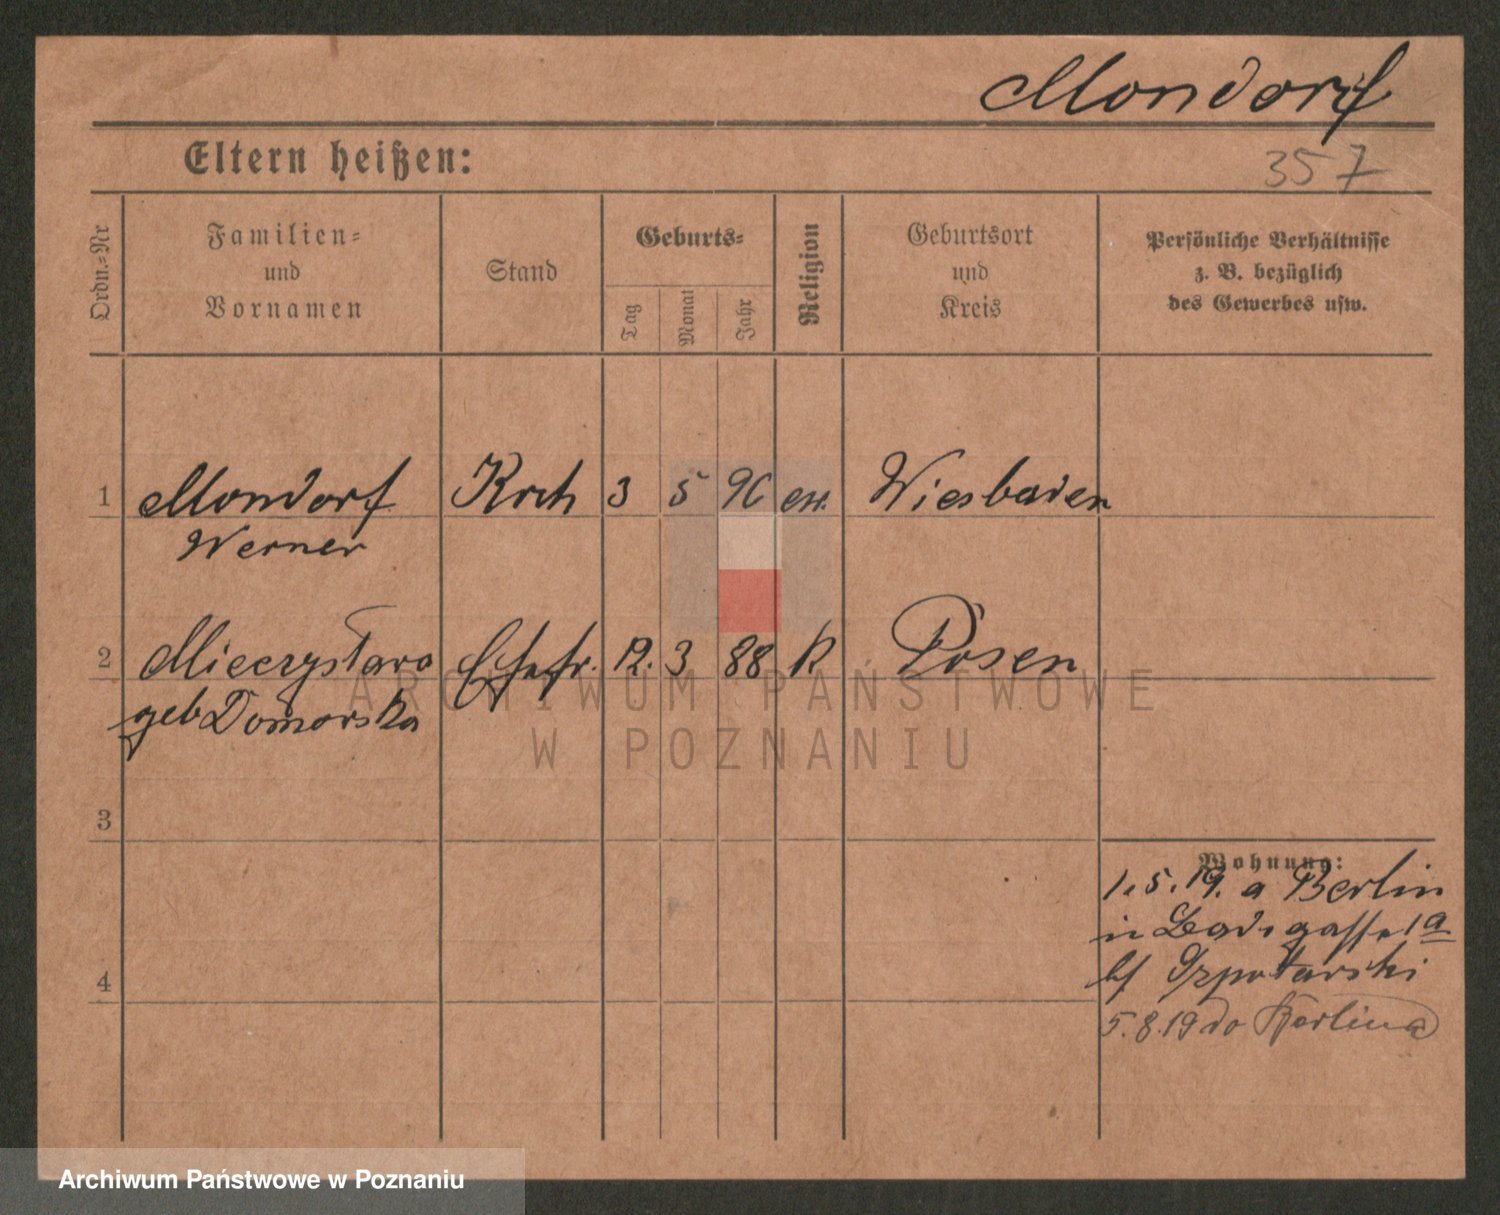 Mondorf
Eltern heißen:
357
Ordn.=Nr
Familien=
und
Vornamen
Stand
Geburts=
Tag
Monat
Jahr
Religion
Geburtsort
und
Kreis
Persönliche Verhältnisse
z. B. bezüglich
des Gewerbes usw.
1 Mondorf Koch 3 5 96 ev. Wiesbaden
Werner
2 Mieczysława Ehefr. 12. 3 88 k Posen
geb Domorska
3
4
Wohnung:
1.5.19. a Berlin
in 1a
b/
5.8.19 do Berlina
ARCHIWUM PAŃSTWOWE
W POZNANIU
Archiwum Państwowe w Poznaniu